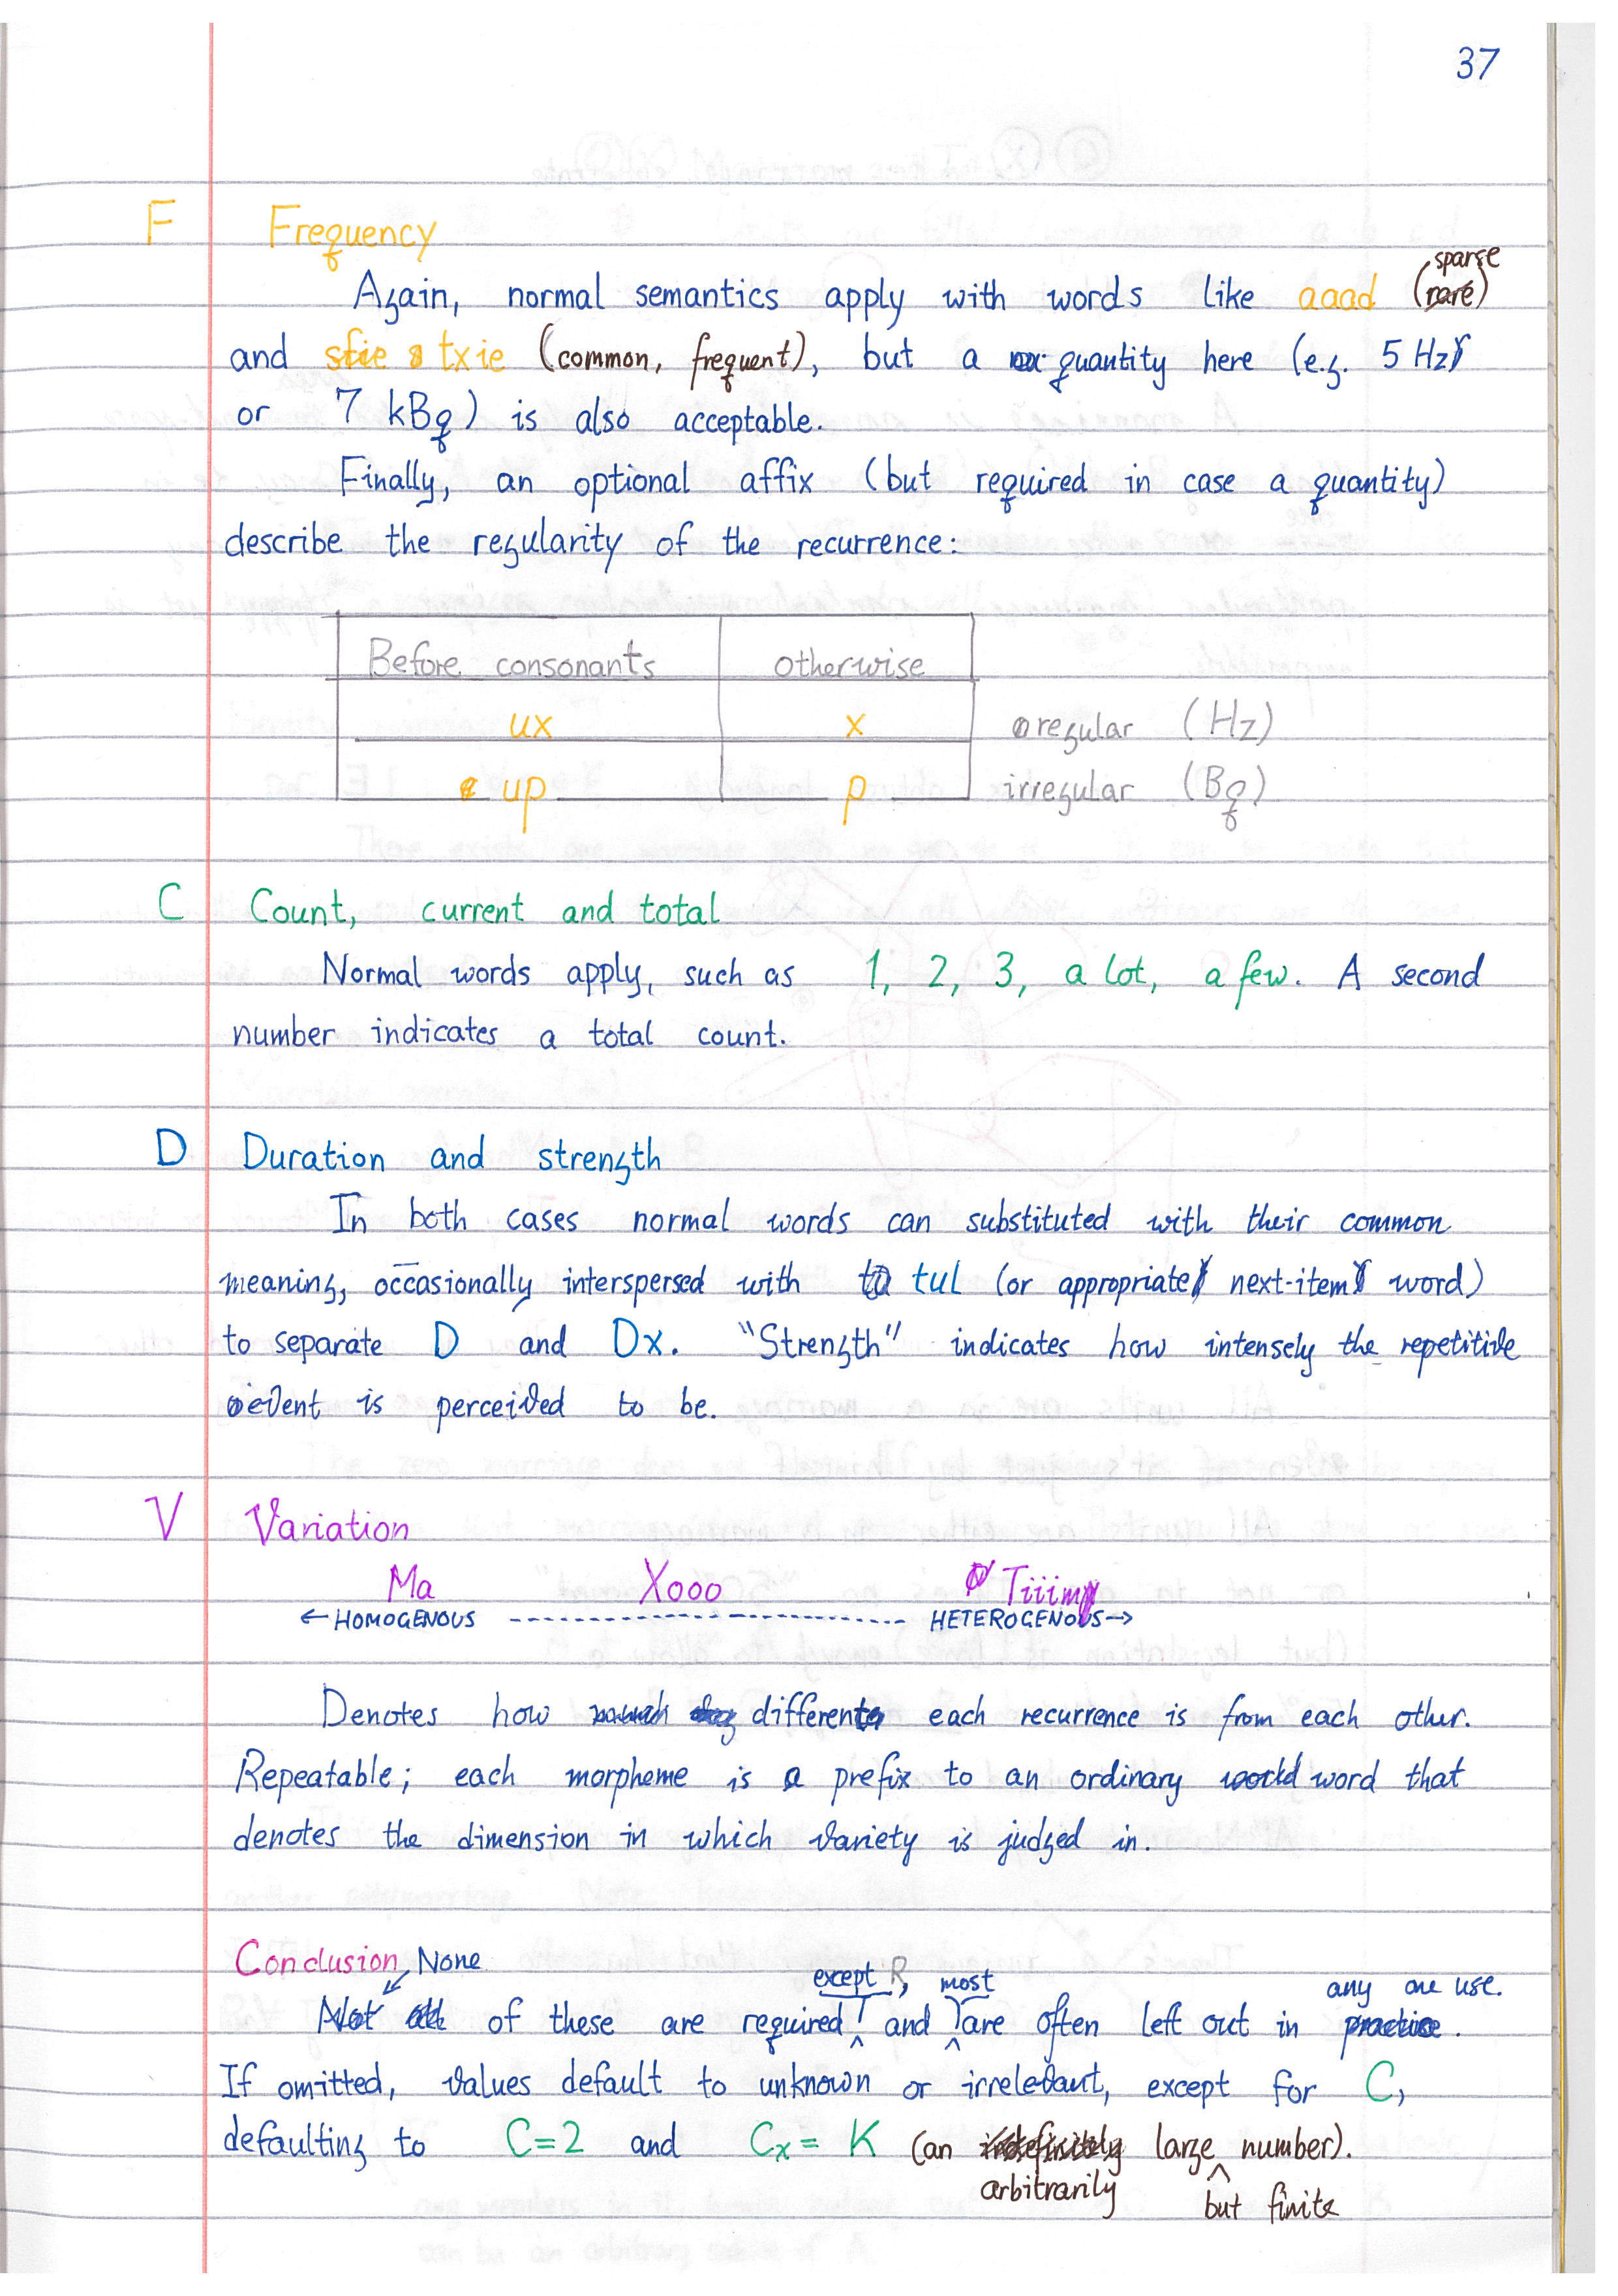 37
F Frequency
sparse
Again, normal semantics apply with words like aaad (rare)
and stie s txie (common, frequent), but a quantity here (e.g. 5 Hz
or 7 kBq) is also acceptable.
Finally, an optional affix (but required in case a quantity)
describe the regularity of the recurrence:
Before consonants otherwise
ux x regular (Hz)
up p irregular (Bq)
C Count, current and total
Normal words apply, such as 1, 2, 3, a lot, a few. A second
number indicates a total count.
D Duration and strength
In both cases normal words can substituted with their common
meaning, occasionally interspersed with tul (or appropriate next-item word)
to separate D and Dx. "Strength" indicates how intensely the repetitive
event is perceived to be.
V Variation
Ma Xooo Tiiim
← HOMOGENOUS ---------- HETEROGENOUS →
Denotes how different each recurrence is from each other.
Repeatable; each morpheme is a prefix to an ordinary word that
denotes the dimension in which variety is judged in.
Conclusion None
except R, most any one use.
Not all of these are required and are often left out in practice.
If omitted, values default to unknown or irrelevant, except for C,
defaulting to C=2 and Cx = K (an indefinitely large number).
arbitrarily but finite